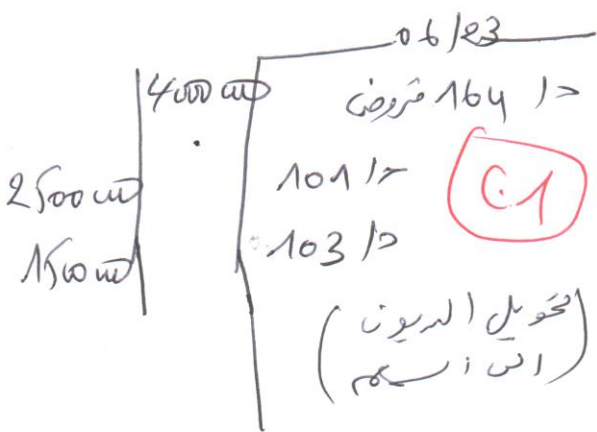 06/23
4000 000
ح/ 164 قروض
2500 000
ح/ 101
01
1500 000
ح/ 103
(تحويل الديون
الى أسهم)